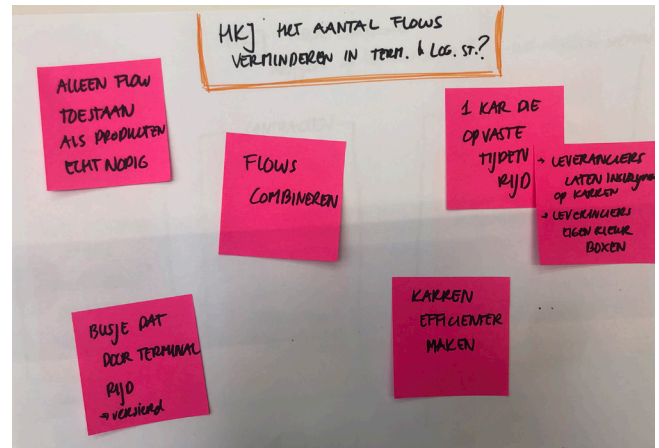 HKJ HET AANTAL FLOWS
VERMINDEREN IN TERM. & LOG. ST.?
ALLEEN FLOW
TOESTAAN
ALS PRODUCTEN
ECHT NODIG
FLOWS
COMBINEREN
1 KAR DIE
OP VASTE
TIJDEN
RIJD
→ LEVERANCIERS
LATEN
OP KARREN
→ LEVERANCIERS
EIGEN KLEUR
BOXEN
BUSJE DAT
DOOR TERMINAL
RIJD
→ VERSIERD
KARREN
EFFICIENTER
MAKEN